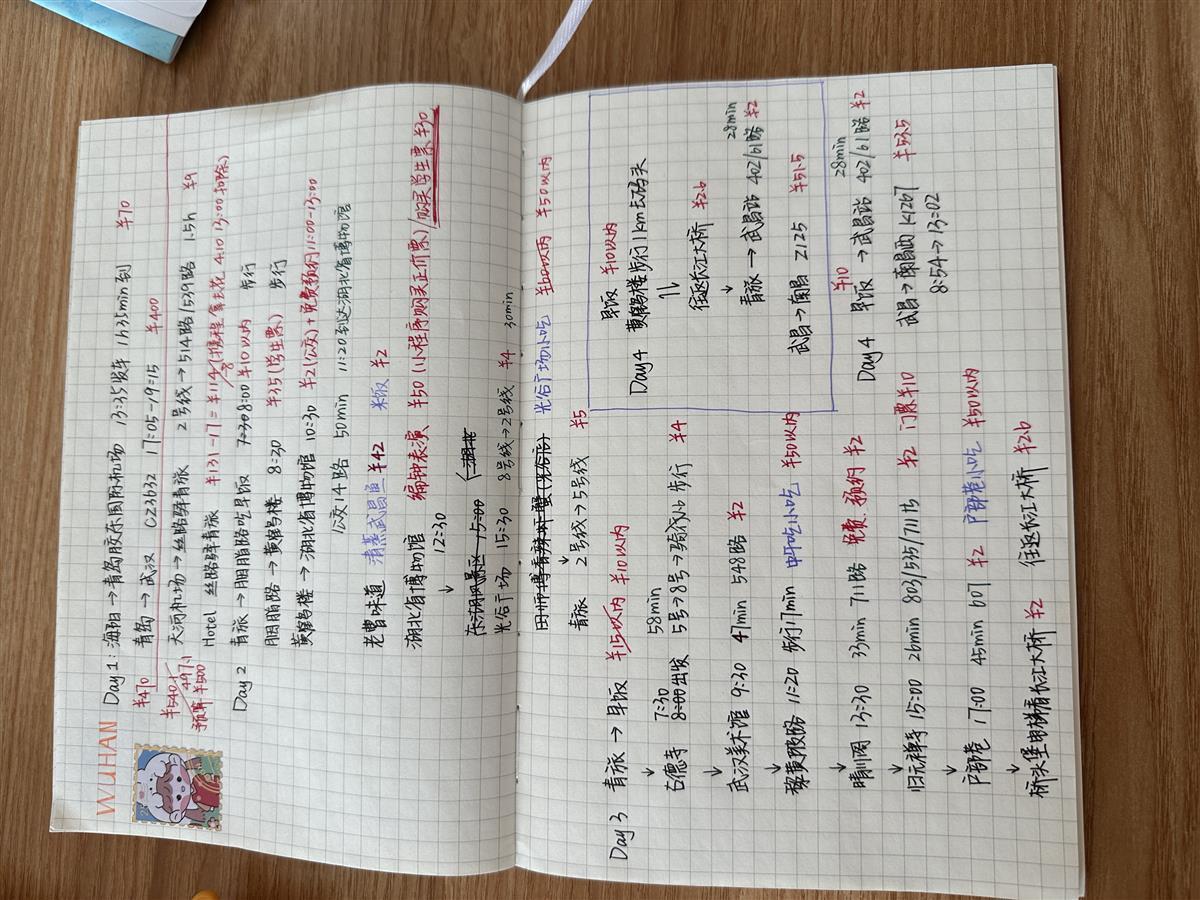 WUHAN
Day 1: 海阳→青岛胶东国际机场 13:35发车 1h35min到 ¥70
¥470 青岛→武汉 CZ3632 17:05-19:15 ¥400
¥540.1 天河机场→丝路驿青旅 2号线→514路/539路 1.5h ¥9
497.1
预算¥500
Hotel 丝路驿青旅 ¥131-17=¥114 (携程拿去花 4.10 13:00扣除)
Day 2 青旅→胭脂路吃早饭 7:30 8:00 ¥10以内 步行
胭脂路→黄鹤楼 8:30 ¥35(学生票) 步行
黄鹤楼→湖北省博物馆 10:30 ¥2(公交)+免费预约11:00-13:00
公交14路 50min 11:20到达湖北省博物馆
老曾味道 清蒸武昌鱼 ¥42 米饭 ¥2
湖北省博物馆 编钟表演 ¥50(小程序购买正价票)/购买学生票¥30
↓ 12:30
东湖风景区 15:00
光谷广场 15:30 8号线→2号线 ¥4 30min
光谷广场小吃 ¥50以内
↓
青旅 2号线→5号线 ¥5
Day 3 青旅→早饭 ¥15以内 ¥10以内
↓ 7:30 58min
古德寺 8:00出发 5号→8号→骑行/步行 ¥4
↓
武汉美术馆 9:30 47min 548路 ¥2
↓
黎黄陂路 11:20 步行17min 中午吃小吃 ¥50以内
↓
晴川阁 13:30 33min 711路 免费 预约 ¥2
归元禅寺 15:00 26min 803/555/711路 ¥2 门票¥10
↓
户部巷 17:00 45min 607 ¥2 户部巷小吃 ¥50以内
↓
桥头堡电梯看长江大桥 ¥2 往返长江大桥 ¥2b
早饭 ¥10以内
Day4 黄鹤楼步行1km到码头
往返长江大桥 ¥2b
↓ 28min
青旅→武昌站 402/61路 ¥2
武昌→南昌 Z125 ¥51.5
¥10 28min
Day4 早饭→武昌站 402/61路 ¥2
武昌→南昌西 K1267 ¥53.5
8:54→13:02